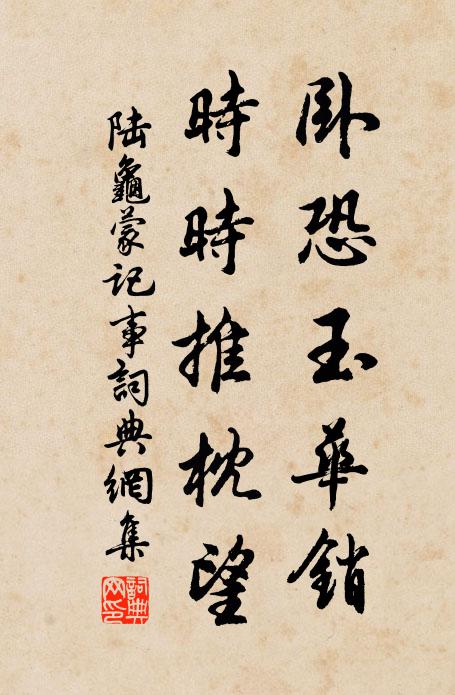 卧恐玉華銷
時時推枕望
陸龜蒙記事詞典網集
詞典網印